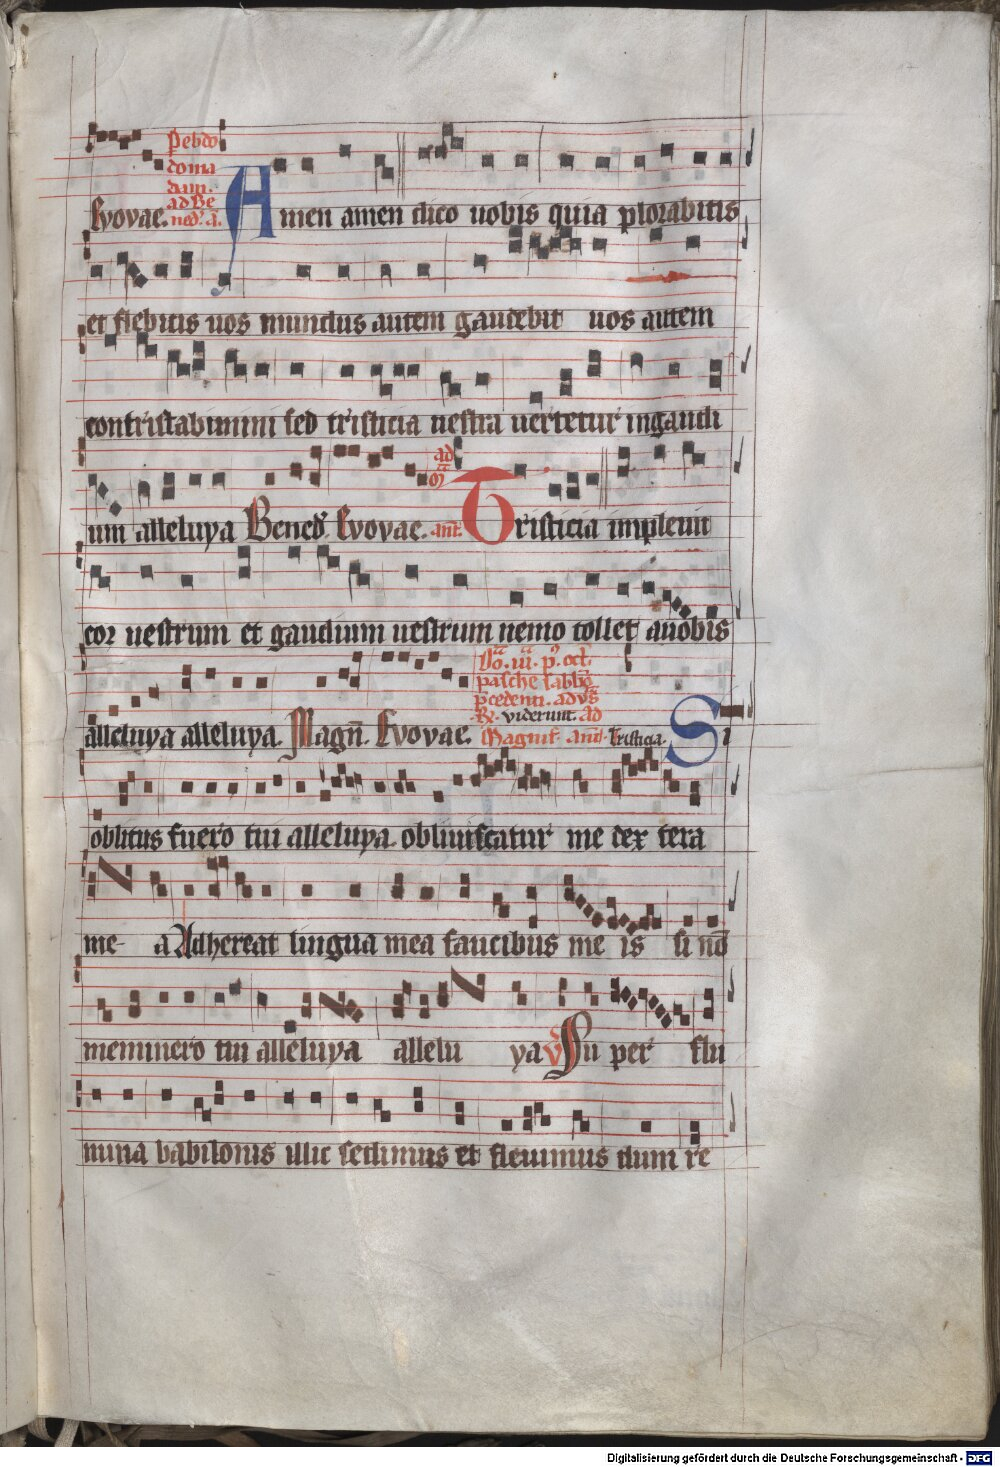 p̱ ebdo
doma
dam.
ad Be
Evovae. ned. a. Amen amen dico uobis quia plorabitis
et flebitis uos mundus autem gaudebit uos autem
contristabimini sed tristicia uestra uertetur ingaudi
ad
um alleluya Bened Evovae. ant. Tristicia impleuit
cor uestrum et gaudium uestrum nemo tollet auobis
pasche sabbo
pcedenti. ad
alleluya alleluya. Magn Evovae. R. viderunt. Ad
Magnif. ant. Tristicia. Si
oblitus fuero tui alleluya. obliuiscatur me dex tera
me a Adhereat lingua mea faucibus me is si no
meminero tui alleluya allelu ya V Su per flu
mina babilonis illic sedimus et fleuimus dum re
Digitalisierung gefördert durch die Deutsche Forschungsgemeinschaft - DFG